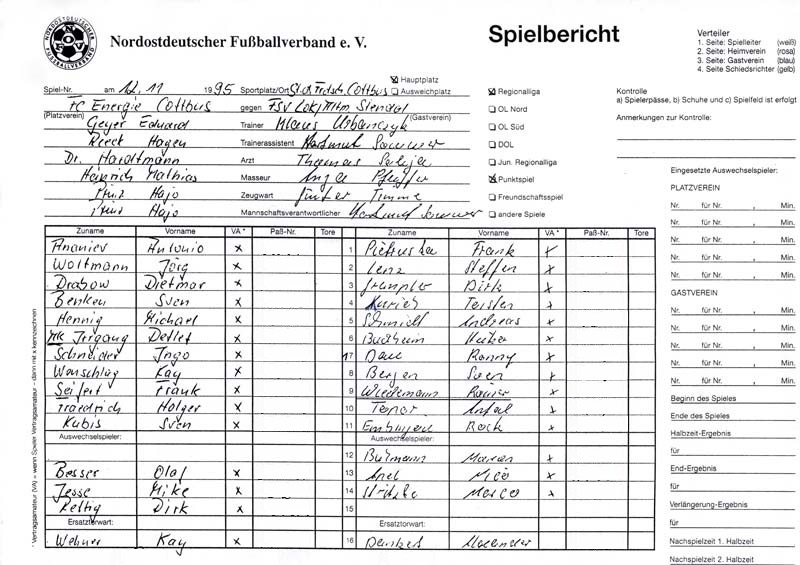 NORDOSTDEUTSCHER FUSSBALLVERBAND
NOFV
Nordostdeutscher Fußballverband e. V.
Spielbericht
Verteiler
1. Seite: Spielleiter (weiß)
2. Seite: Heimverein (rosa)
3. Seite: Gastverein (blau)
4. Seite Schiedsrichter (gelb)
Spiel-Nr. am 12. 11 1995 Sportplatz/Ort Cottbus
Hauptplatz
Ausweichplatz
FC Energie Cottbus gegen FSV Lok/Altm. Stendal
(Platzverein) (Gastverein)
Geyer Eduard Trainer Klaus Urbanczyk
Reeck Hagen Trainerassistent Hartmut
Dr. Hardtmann Arzt Thomas
Heinrich Mathias Masseur Pfeiffer
Prinz Hajo Zeugwart Günter Timme
Prinz Hajo Mannschaftsverantwortlicher
Regionalliga
OL Nord
OL Süd
DOL
Jun. Regionalliga
Punktspiel
Freundschaftsspiele
andere Spiele
Kontrolle
a) Spielerpässe, b) Schuhe und c) Spielfeld ist erfolgt
Anmerkungen zur Kontrolle:
Zuname Vorname VA* Paß-Nr. Tore Zuname Vorname VA* Paß-Nr. Tore
Ananiev Antonio x 1 Frank x
Woltmann Jörg x 2 Lenz Steffen x
Drabow Dietmar x 3 Dirk x
Benken Sven x 4 Torsten x
Hennig Michael x 5 Schmidt Andreas x
Irrgang Detlef x 6 x
Schneider Ingo x 17 Ronny x
Wanschlag Kay x 8 Sven x
Seifert Frank x 9 Wiedemann Rainer x
Holger x 10 x
Kubis Sven x 11 x
Auswechselspieler: Auswechselspieler:
12 x
Besser Olaf x 13 x
Jesse Mike x 14 Marco x
Rettig Dirk x 15
Ersatztorwart: Ersatztorwart:
Wehner Kay x 16 Alexander
* Vertragsamateur (VA) = wenn Spieler Vertragsamateur – dann mit x kennzeichnen
Eingesetzte Auswechselspieler:
PLATZVEREIN
Nr. für Nr. , Min.
Nr. für Nr. , Min.
Nr. für Nr. , Min.
Nr. für Nr. , Min.
Nr. für Nr. , Min.
GASTVEREIN
Nr. für Nr. , Min.
Nr. für Nr. , Min.
Nr. für Nr. , Min.
Nr. für Nr. , Min.
Nr. für Nr. , Min.
Beginn des Spieles
Ende des Spieles
Halbzeit-Ergebnis
für
End-Ergebnis
für
Verlängerung-Ergebnis
für
Nachspielzeit 1. Halbzeit
Nachspielzeit 2. Halbzeit